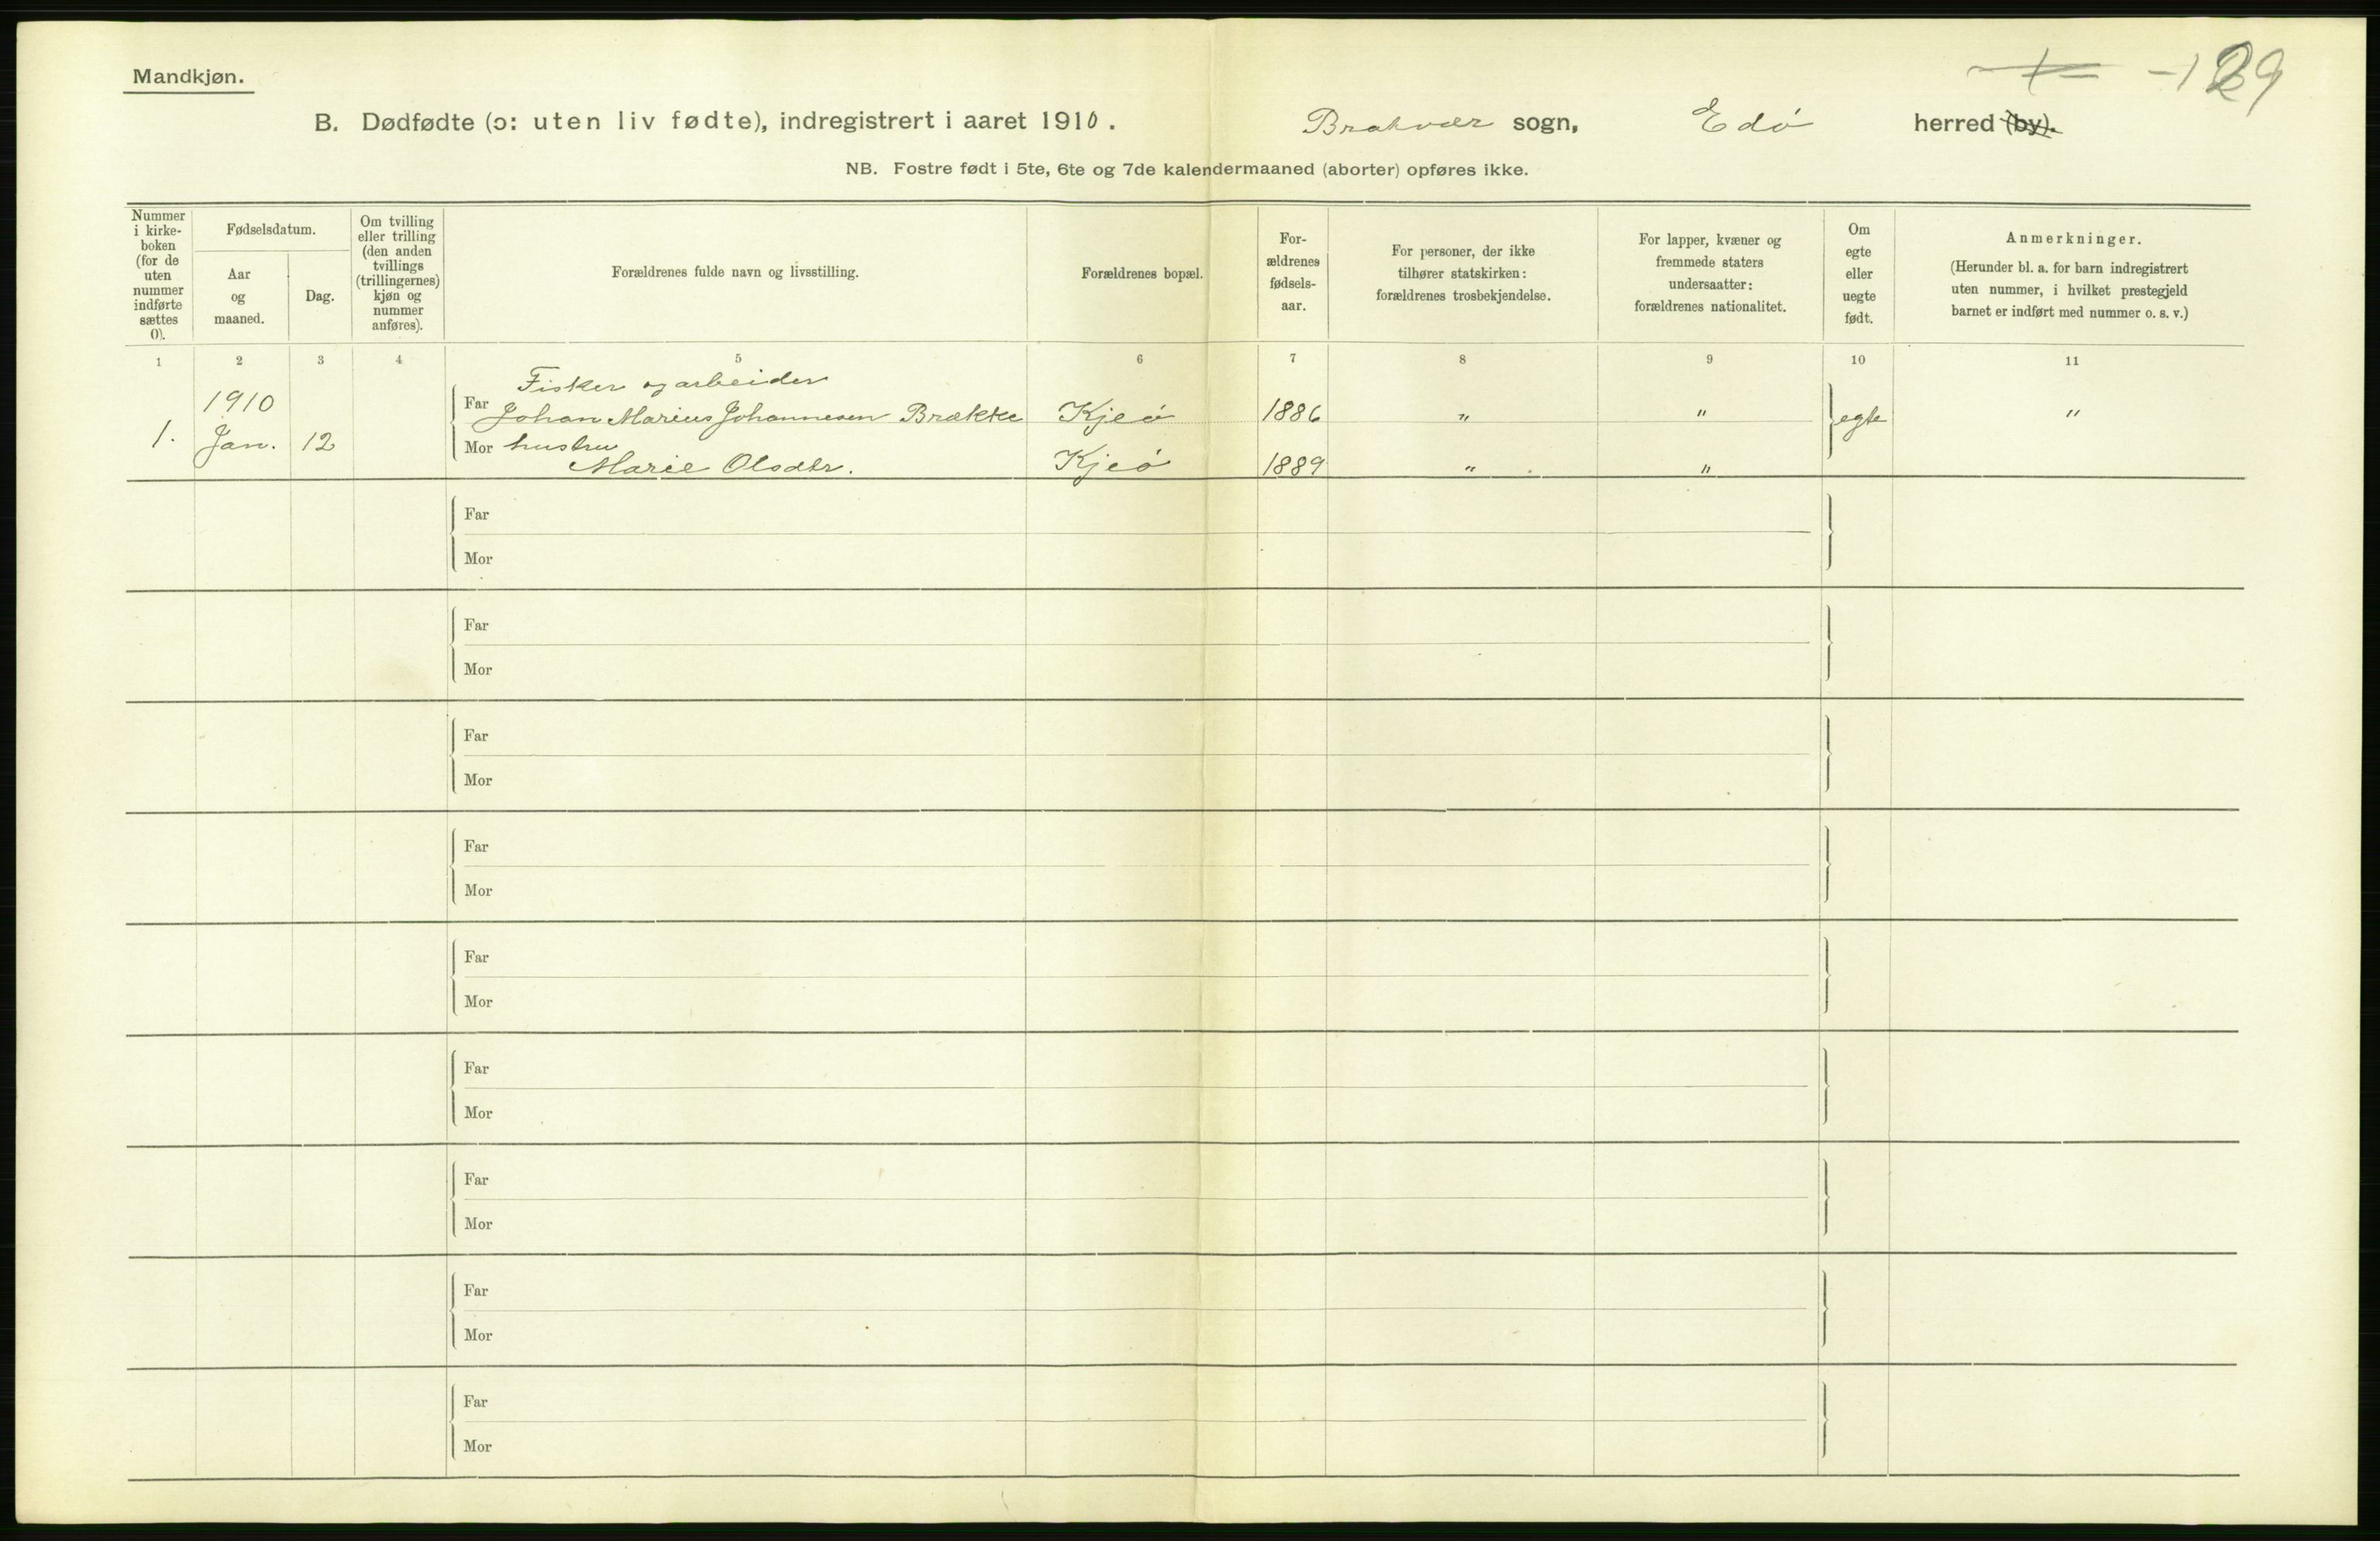 Mandkjøn.
-129
B. Dødfødte (ɔ: uten liv fødte), indregistrert i aaret 1910. Brakvær sogn, Edø herred (by).
NB. Fostre født i 5te, 6te og 7de kalendermaaned (aborter) opføres ikke.
Nummer i kirke-boken (for de uten nummer indførte sættes 0).
Fødselsdatum.
Aar og maaned.
Dag.
Om tvilling eller trilling (den anden tvillings (trillingernes) kjøn og nummer anføres).
Forældrenes fulde navn og livsstilling.
Forældrenes bopæl.
For-ældrenes fødsels-aar.
For personer, der ikke tilhører statskirken: forældrenes trosbekjendelse.
For lapper, kvæner og fremmede staters undersaatter: forældrenes nationalitet.
Om egte eller uegte født.
Anmerkninger.
(Herunder bl. a. for barn indregistrert uten nummer, i hvilket prestegjeld barnet er indført med nummer o. s. v.)
1 2 3 4 5 6 7 8 9 10 11
Fisker og arbeider
1910 Far Johan Marius Johannesen Brække Kjeø 1886 " " egte "
1. Jan. 12 Mor hustru
Marie Olsdtr. Kjeø 1889 " "
Far
Mor
Far
Mor
Far
Mor
Far
Mor
Far
Mor
Far
Mor
Far
Mor
Far
Mor
Far
Mor